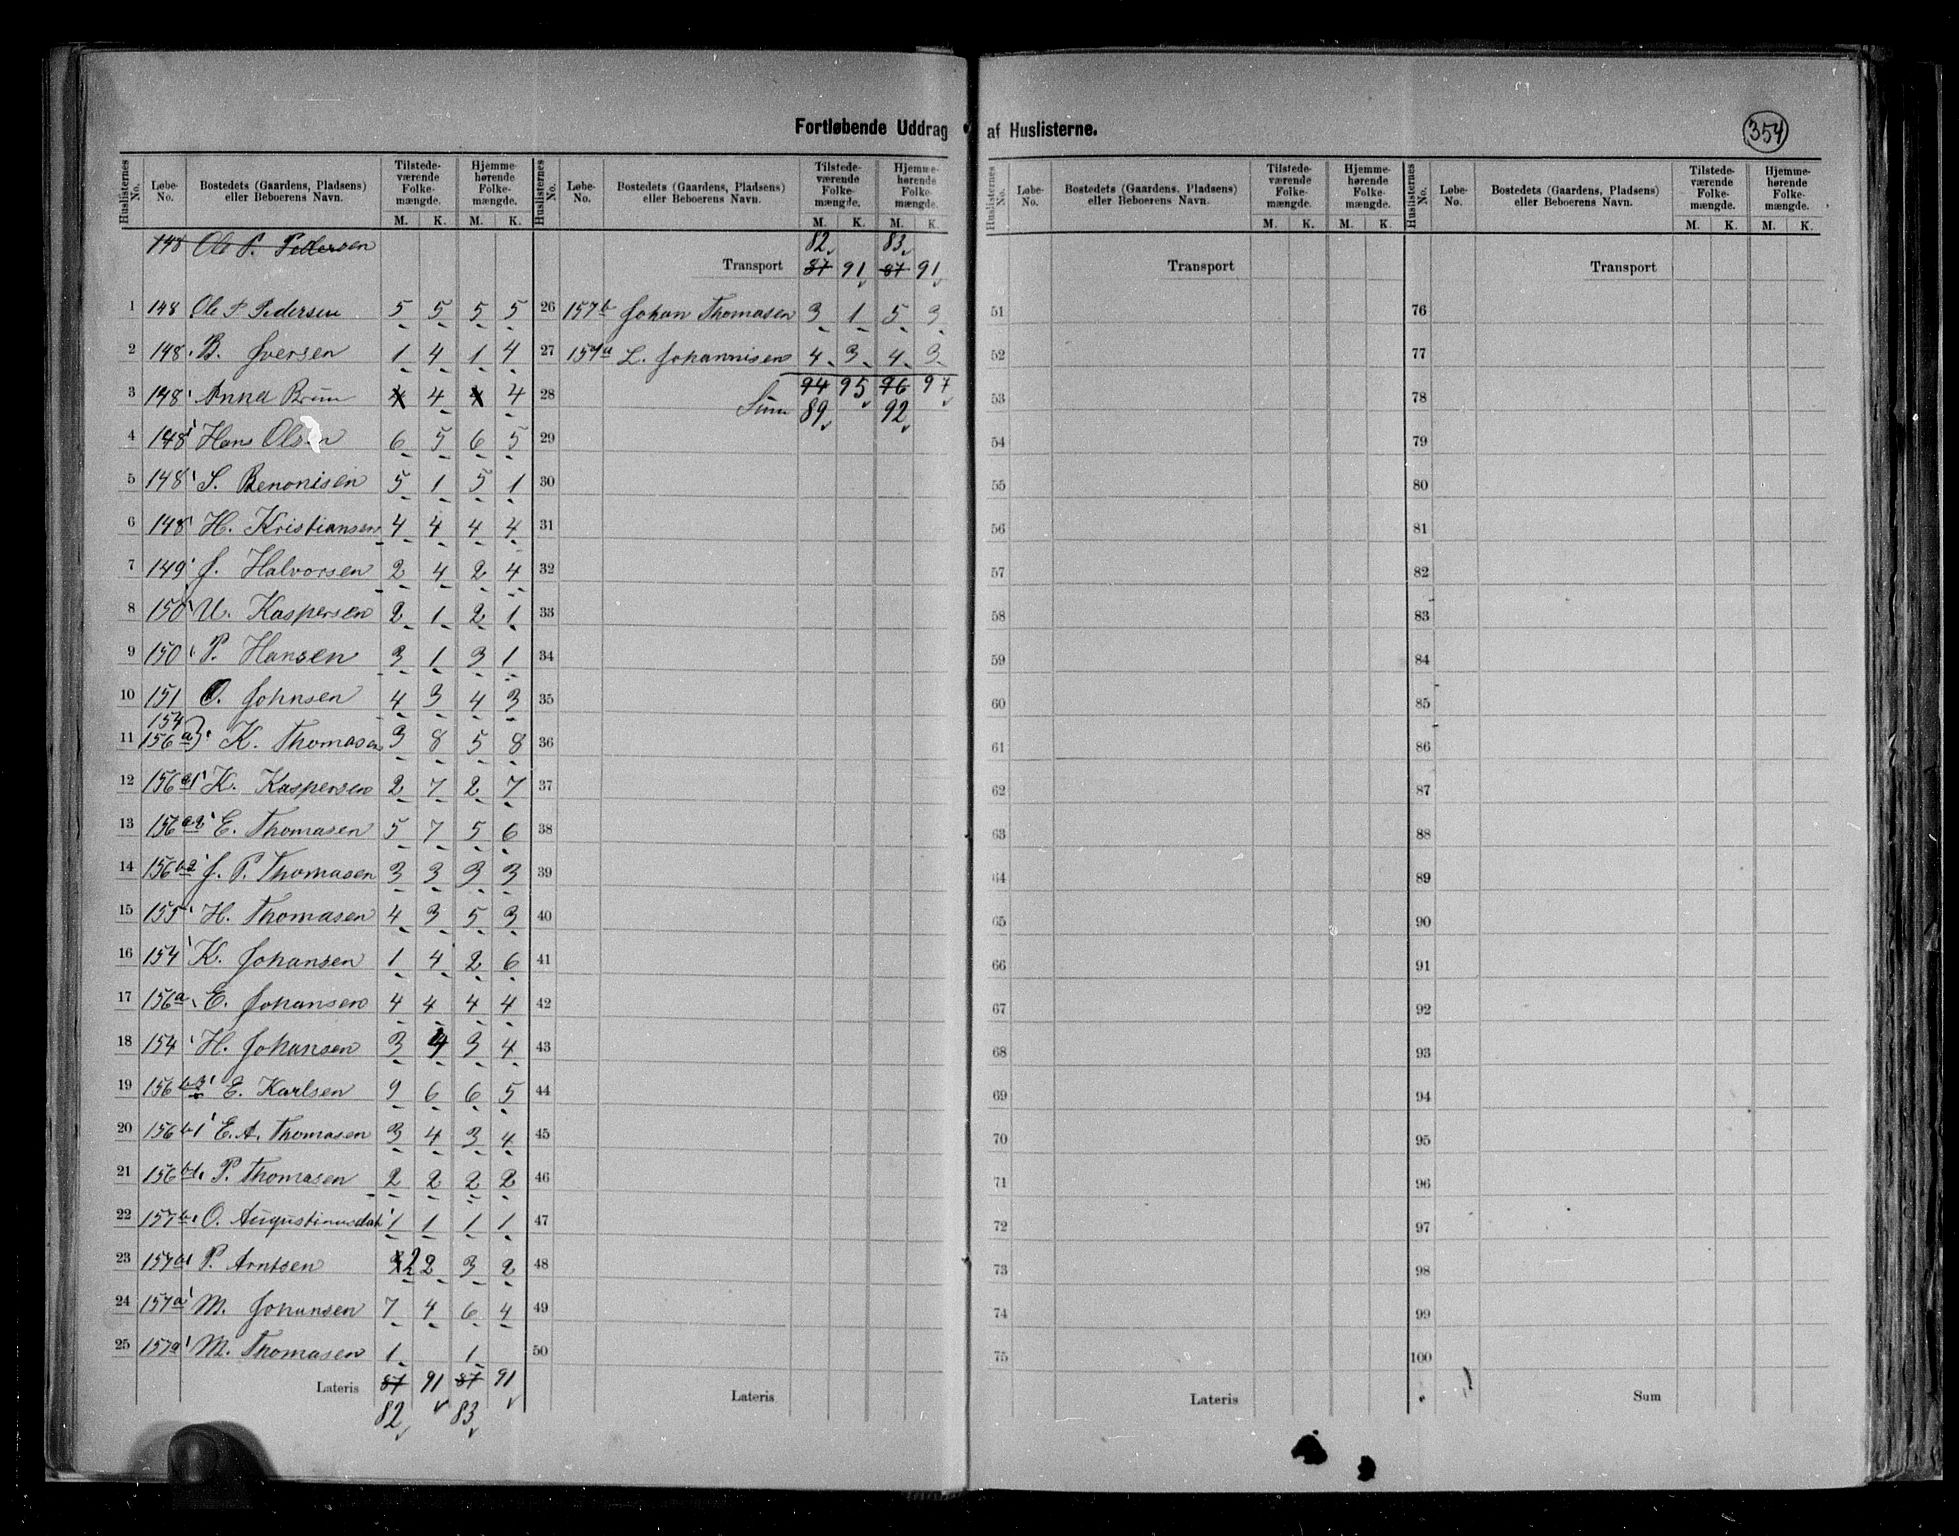 Fortløbende Uddrag af Huslisterne.
354
Huslisternes No. Løbe-No. Bostedets (Gaardens, Pladsens) eller Beboerens Navn. Tilstedeværende Folkemængde. M. K. Hjemmehørende Folkemængde. M. K.
148 Ole P. Pedersen
1 148 Ole P Pedersen 5 5 5 5
2 148 B. Iversen 1 4 1 4
3 148 Anna Brun 4 4 4 4
4 148 Hans Olsen 6 5 6 5
5 148 S. Benonisen 5 1 5 1
6 148 H. Kristiansen 4 4 4 4
7 149 J. Halvorsen 2 4 2 4
8 150 U. Kaspersen 2 1 2 1
9 150 P. Hansen 3 1 3 1
10 151 O. Johnsen 4 3 4 3
154
11 156a K. Thomasen 3 8 5 8
12 156a1 K. Kaspersen 2 7 2 7
13 156a2 E. Thomasen 5 7 5 6
14 156b2 J. P. Thomasen 3 3 3 3
15 155 H. Thomasen 4 3 5 3
16 154 K. Johansen 1 4 2 6
17 156a E. Johansen 4 4 4 4
18 154 H. Johansen 3 4 3 4
19 156b3 E. Karlsen 9 6 6 5
20 156b1 E. A. Thomasen 3 4 3 4
21 156b1 P. Thomasen 2 2 2 2
22 157b O. Augustinusdat 1 1 1 1
23 157a P. Arntsen 3 2 2 3 2
24 157a M. Johansen 7 4 6 4
25 157a M. Thomasen 1 1
Lateris 87 91 87 91
82 83
Huslisternes No. Løbe-No. Bostedets (Gaardens, Pladsens) eller Beboerens Navn. Tilstedeværende Folkemængde. M. K. Hjemmehørende Folkemængde. M. K.
82 83
Transport 87 91 87 91
26 157b Johan Thomasen 3 1 5 3
27 157a L. Johannisen 4 3 4 3
28 94 95 96 97
Sum 89 92
29
30
31
32
33
34
35
36
37
38
39
40
41
42
43
44
45
46
47
48
49
50
Lateris
Huslisternes No. Løbe-No. Bostedets (Gaardens, Pladsens) eller Beboerens Navn. Tilstedeværende Folkemængde. M. K. Hjemmehørende Folkemængde. M. K.
Transport
51
52
53
54
55
56
57
58
59
60
61
62
63
64
65
66
67
68
69
70
71
72
73
74
75
Lateris
Huslisternes No. Løbe-No. Bostedets (Gaardens, Pladsens) eller Beboerens Navn. Tilstedeværende Folkemængde. M. K. Hjemmehørende Folkemængde. M. K.
Transport
76
77
78
79
80
81
82
83
84
85
86
87
88
89
90
91
92
93
94
95
96
97
98
99
100
Sum